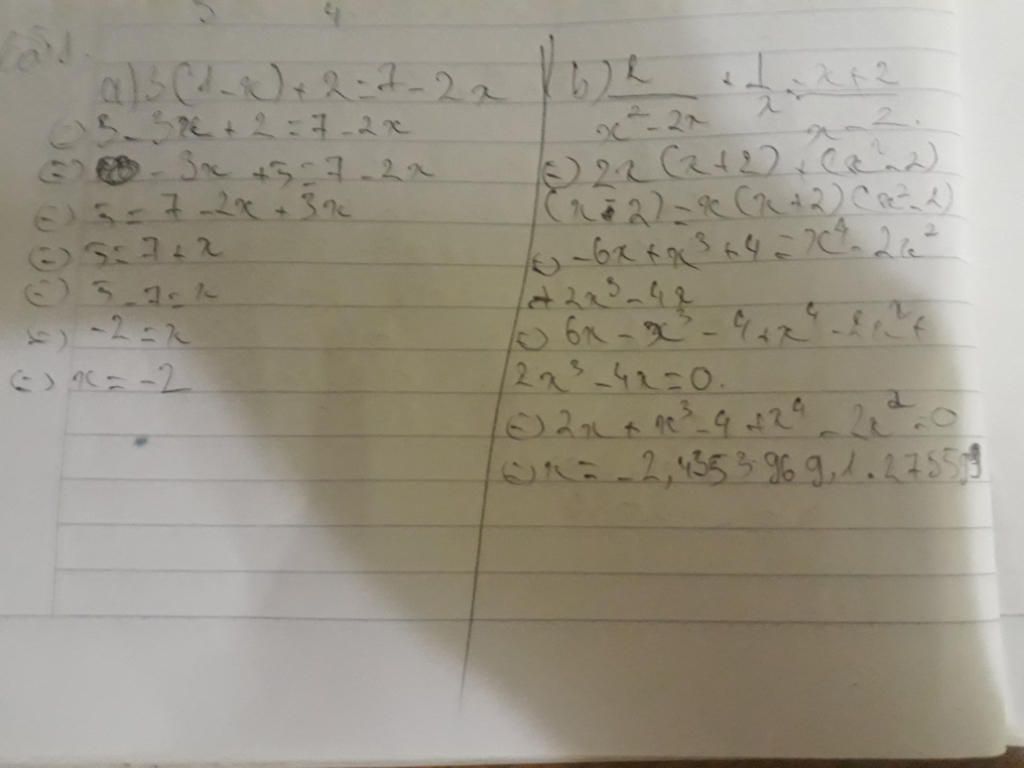 Bài 1.
a) 3(1-x)+2=7-2x
(=) 3-3x+2=7-2x
(=) -3x+5=7-2x
(=) 5=7-2x+3x
(=) 5=7+x
(=) 5-7=x
(=) -2=x
(=) x=-2
b) 2/(x²-2x) + 1/x = (x+2)/(x-2).
(=) 2x(x+2)+(x²-2)
(x-2)=x(x+2)(x²-2)
(=) -6x+x³+4=x⁴-2x²
+2x³-4x
(=) 6x-x³-4+x⁴-2x²+
2x³-4x=0.
(=) 2x+x³-4+x⁴-2x²=0
(=) x=-2,4353969,1.275599